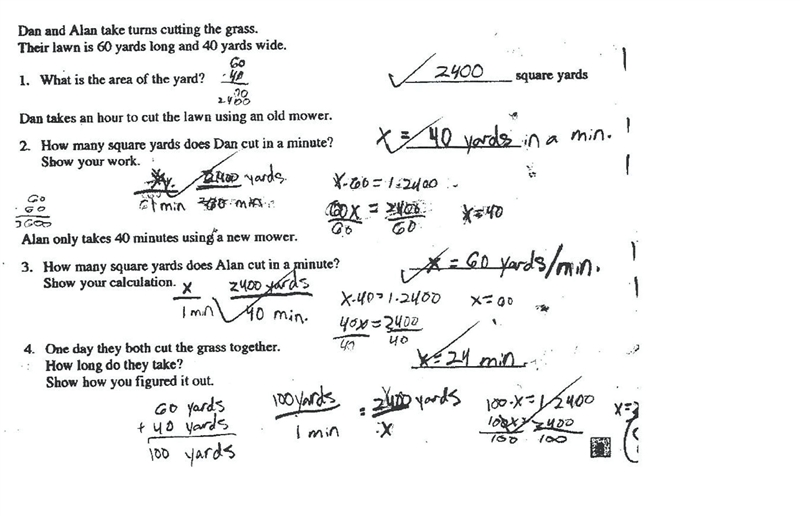 Dan and Alan take turns cutting the grass.
Their lawn is 60 yards long and 40 yards wide.
60
·40
00
2400
1. What is the area of the yard?
2400 square yards
1
Dan takes an hour to cut the lawn using an old mower.
2. How many square yards does Dan cut in a minute?
Show your work.
x = 40 yards in a min.
1
1
2400 yards
1 min
60 min
x·60=1·2400
60x = 2400
60 60
x=40
60
60
3600
Alan only takes 40 minutes using a new mower.
3. How many square yards does Alan cut in a minute?
Show your calculation.
x = 60 yards/min.
1
1
x 2400 yards
1 min 40 min.
x·40=1·2400
40x=2400
40 40
x=60
4. One day they both cut the grass together.
How long do they take?
Show how you figured it out.
x=24 min
1
60 yards
+ 40 yards
100 yards
100 yards = 2400 yards
1 min x
100·x=1·2400
100x=2400
100 100
x=2